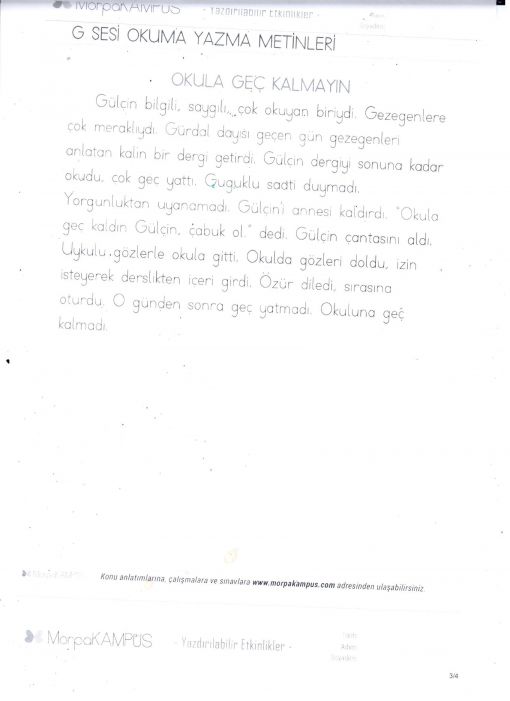 MorpaKAMPÜS - Yazdırılabilir Etkinlikler -
G SESİ OKUMA YAZMA METİNLERİ
OKULA GEÇ KALMAYIN
Gülçin bilgili, saygılı, çok okuyan biriydi. Gezegenlere
çok meraklıydı. Gürdal dayısı geçen gün gezegenleri
anlatan kalın bir dergi getirdi. Gülçin dergiyi sonuna kadar
okudu, çok geç yattı. Guguklu saati duymadı.
Yorgunluktan uyanamadı. Gülçin'i annesi kaldırdı. "Okula
geç kaldın Gülçin, çabuk ol." dedi. Gülçin çantasını aldı.
Uykulu gözlerle okula gitti. Okulda gözleri doldu, izin
isteyerek derslikten içeri girdi. Özür diledi, sırasına
oturdu. O günden sonra geç yatmadı. Okuluna geç
kalmadı.
MorpaKAMPÜS Konu anlatımlarına, çalışmalara ve sınavlara www.morpakampus.com adresinden ulaşabilirsiniz.
MorpaKAMPÜS - Yazdırılabilir Etkinlikler -
3/4